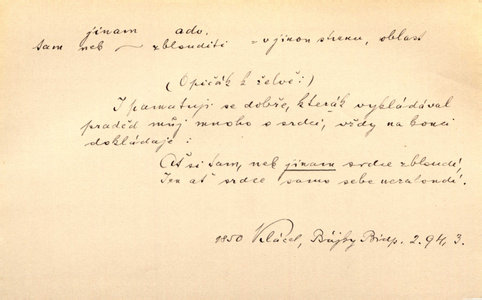 jinam adv.
tam neb ~ zblouditi = v jinou stranu, oblast
(Opičák k želvě:)
I pamatuji se dobře, kterak vykládával
praděd můj mnoho o srdci, vždy na konci
dokládaje:
Ať si tam, neb jinam srdce zbloudí,
Jen ať srdce samo sebe nezaloudí.
1850 Klácel, Bájky Bidp. 2. 94, 3.